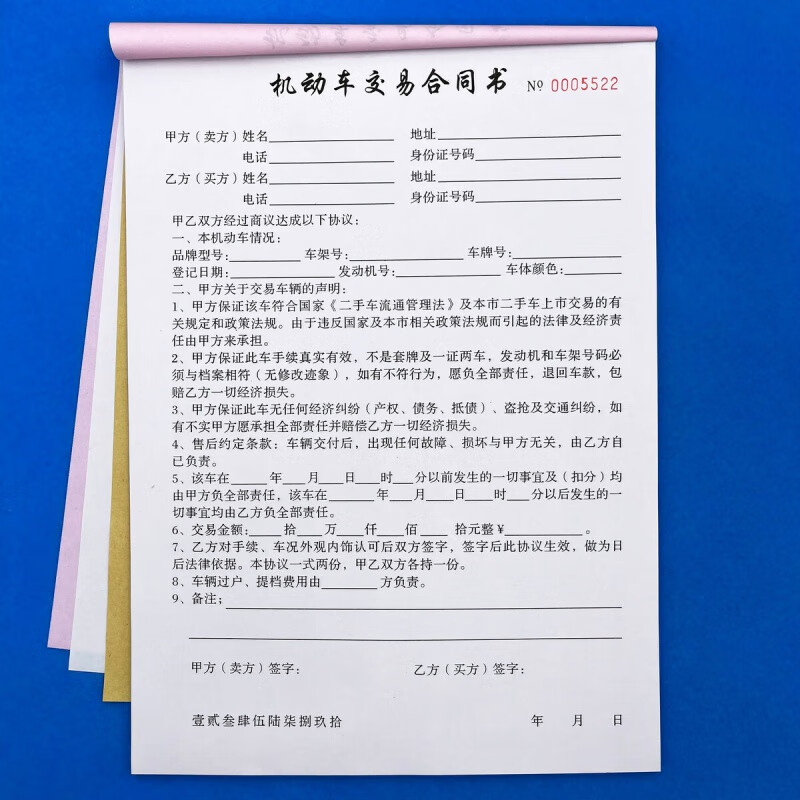 机动车交易合同书 Nº 0005522
甲方（卖方）姓名____________ 地址____________
电话____________ 身份证号码____________
乙方（买方）姓名____________ 地址____________
电话____________ 身份证号码____________
甲乙双方经过商议达成以下协议：
一、本机动车情况：
品牌型号：________ 车架号：____________ 车牌号：____________
登记日期：____________ 发动机号：____________ 车体颜色：______
二、甲方关于交易车辆的声明：
1、甲方保证该车符合国家《二手车流通管理法》及本市二手车上市交易的有
关规定和政策法规。由于违反国家及本市相关政策法规而引起的法律及经济责
任由甲方来承担。
2、甲方保证此车手续真实有效，不是套牌及一证两车，发动机和车架号码必
须与档案相符（无修改迹象），如有不符行为，愿负全部责任，退回车款，包
赔乙方一切经济损失。
3、甲方保证此车无任何经济纠纷（产权、债务、抵债）、盗抢及交通纠纷，如
有不实甲方愿承担全部责任并赔偿乙方一切经济损失。
4、售后约定条款：车辆交付后，出现任何故障、损坏与甲方无关，由乙方自
已负责。
5、该车在_____年___月___日___时___分以前发生的一切事宜及（扣分）均
由甲方负全部责任，该车在_____年___月___日___时___分以后发生的一
切事宜均由乙方负全部责任。
6、交易金额：____拾___万____仟___佰____拾元整￥__________。
7、乙方对手续、车况外观内饰认可后双方签字，签字后此协议生效，做为日
后法律依据。本协议一式两份，甲乙双方各持一份。
8、车辆过户、提档费用由_______方负责。
9、备注；____________
甲方（卖方）签字： 乙方（买方）签字：
壹贰叁肆伍陆柒捌玖拾 年 月 日